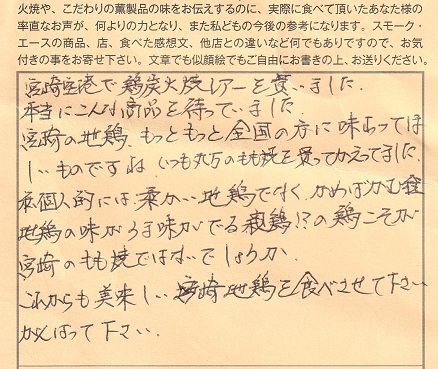 火焼や、こだわりの薫製品の味をお伝えするのに、実際に食べて頂いたあなた様の
率直なお声が、何よりの力となり、また私どもの今後の参考になります。スモーク・
エースの商品、店、食べた感想文、他店との違いなど何でもありですので、お気
付きの事をお寄せ下さい。文章でも似顔絵でもご自由にお書きの上、お送りください。
宮崎空港で鶏炭火焼レアーを買いました。
本当にこんな商品を待っていました。
宮崎の地鶏、もっともっと全国の方に味わってほ
しいものですね。いつも丸万のもも焼を買ってかえってました。
私個人的には柔かい地鶏で付く、かめばかむ程
地鶏の味がうま味がでる親鶏!?の鶏こそが
宮崎のもも焼ではないでしょうか。
これからも美味しい宮崎地鶏を食べさせて下さい
がんばって下さい。